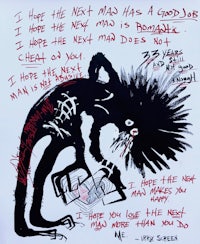 I HOPE THE NEXT MAN HAS A GOOD JOB
I HOPE THE NEXT MAN IS ROMANTIC.
I HOPE THE NEXT MAN DOES NOT
CHEAT ON YOU.
I HOPE THE NEXT
MAN IS NOT ABUSIVE
33 YEARS
AND STILL
NOT GOOD
ENOUGH
I HOPE THE NEXT
MAN MAKES YOU
HAPPY
I HOPE YOU LOVE THE NEXT
MAN MORE THAN YOU DO
ME